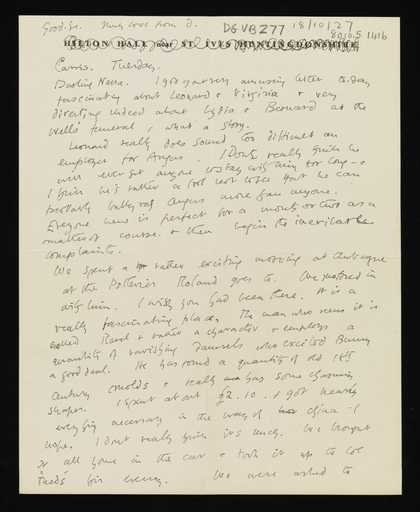 Good.
my love from D.
DGVB277
18/10/27
8010.5.1416
HILTON HALL near ST. IVES HUNTINGDONSHIRE
Tuesday.
Darling Nessa. I got your very amusing letter today
fascinating about Leonard & Virginia & very
indeed about Lydia & Bernard at the
Wells funeral, what a story.
Leonard really does sound too difficult an
employer for Angus. I don't really think he
will ever get anyone to stay with him for long -
I think he's rather a fool not to see that he can
probably bullyrag Angus more than anyone.
Everyone new is perfect for a month or two as a
matter of course & then begin the inevitable
complaints.
We spent a rather exciting morning at Aubagne
at the Potteries Roland goes to. One motored in
with him. I wish you had been there. It is a
really fascinating place. The man who runs it is
called & rather a character & employs a
quantity of ravishing damsels who excited Bunny
a good deal. He has found a quantity of old 18th
century moulds & really has some charming
shapes. I spent about £2.10. & got nearly
everything necessary in the way of china - I
hope. I don't really think its much. We brought
it all home in the car & took it up to
for every. We were asked to